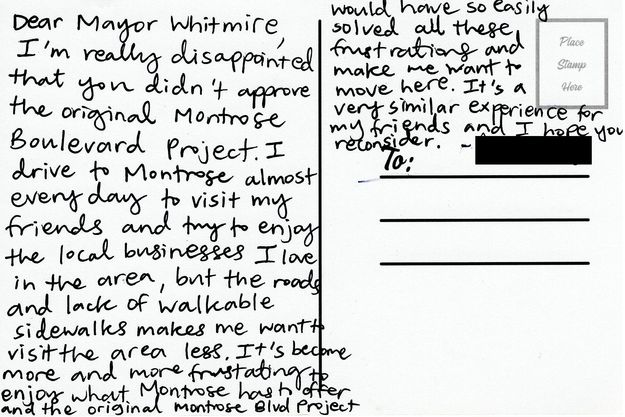 Dear Mayor Whitmire,
I'm really disappointed
that you didn't approve
the original Montrose
Boulevard Project. I
drive to Montrose almost
every day to visit my
friends and try to enjoy
the local businesses I love
in the area, but the roads
and lack of walkable
sidewalks makes me want to
visit the area less. It's become
more and more frustrating to
enjoy what Montrose has to offer
and the original Montrose Blvd Project
would have so easily
solved all these
frustrations and
make me want to
move here. It's a
very similar experience for
my friends and I hope you
reconsider. -
Place
Stamp
Here
To: